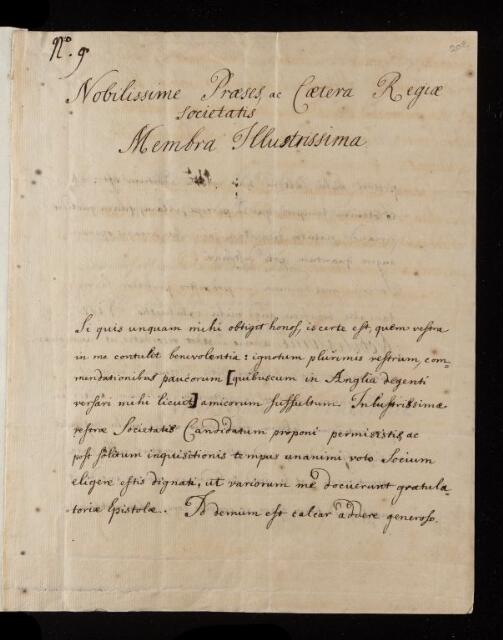 No. 9
Nobilissime Præses, ac Cætera Regiæ
Societatis
Membra Illustrissima
Si quis unquam mihi obtigit honos, is certe est, quem vestra
in me contulit benevolentia: ignotum plurimis vestrum, com=
mendationibus paucorum [quibuscum in Anglia degenti
versari mihi licuit] amicorum suffultum. Inlustrissimæ
vestræ Societatis Candidatum proponi permisistis, ac
post solitum inquisitionis tempus unanimi voto Socium
eligere estis dignati, ut variorum me docuerunt gratula=
toriæ Epistolæ. Id demum est calcar addere generoso.